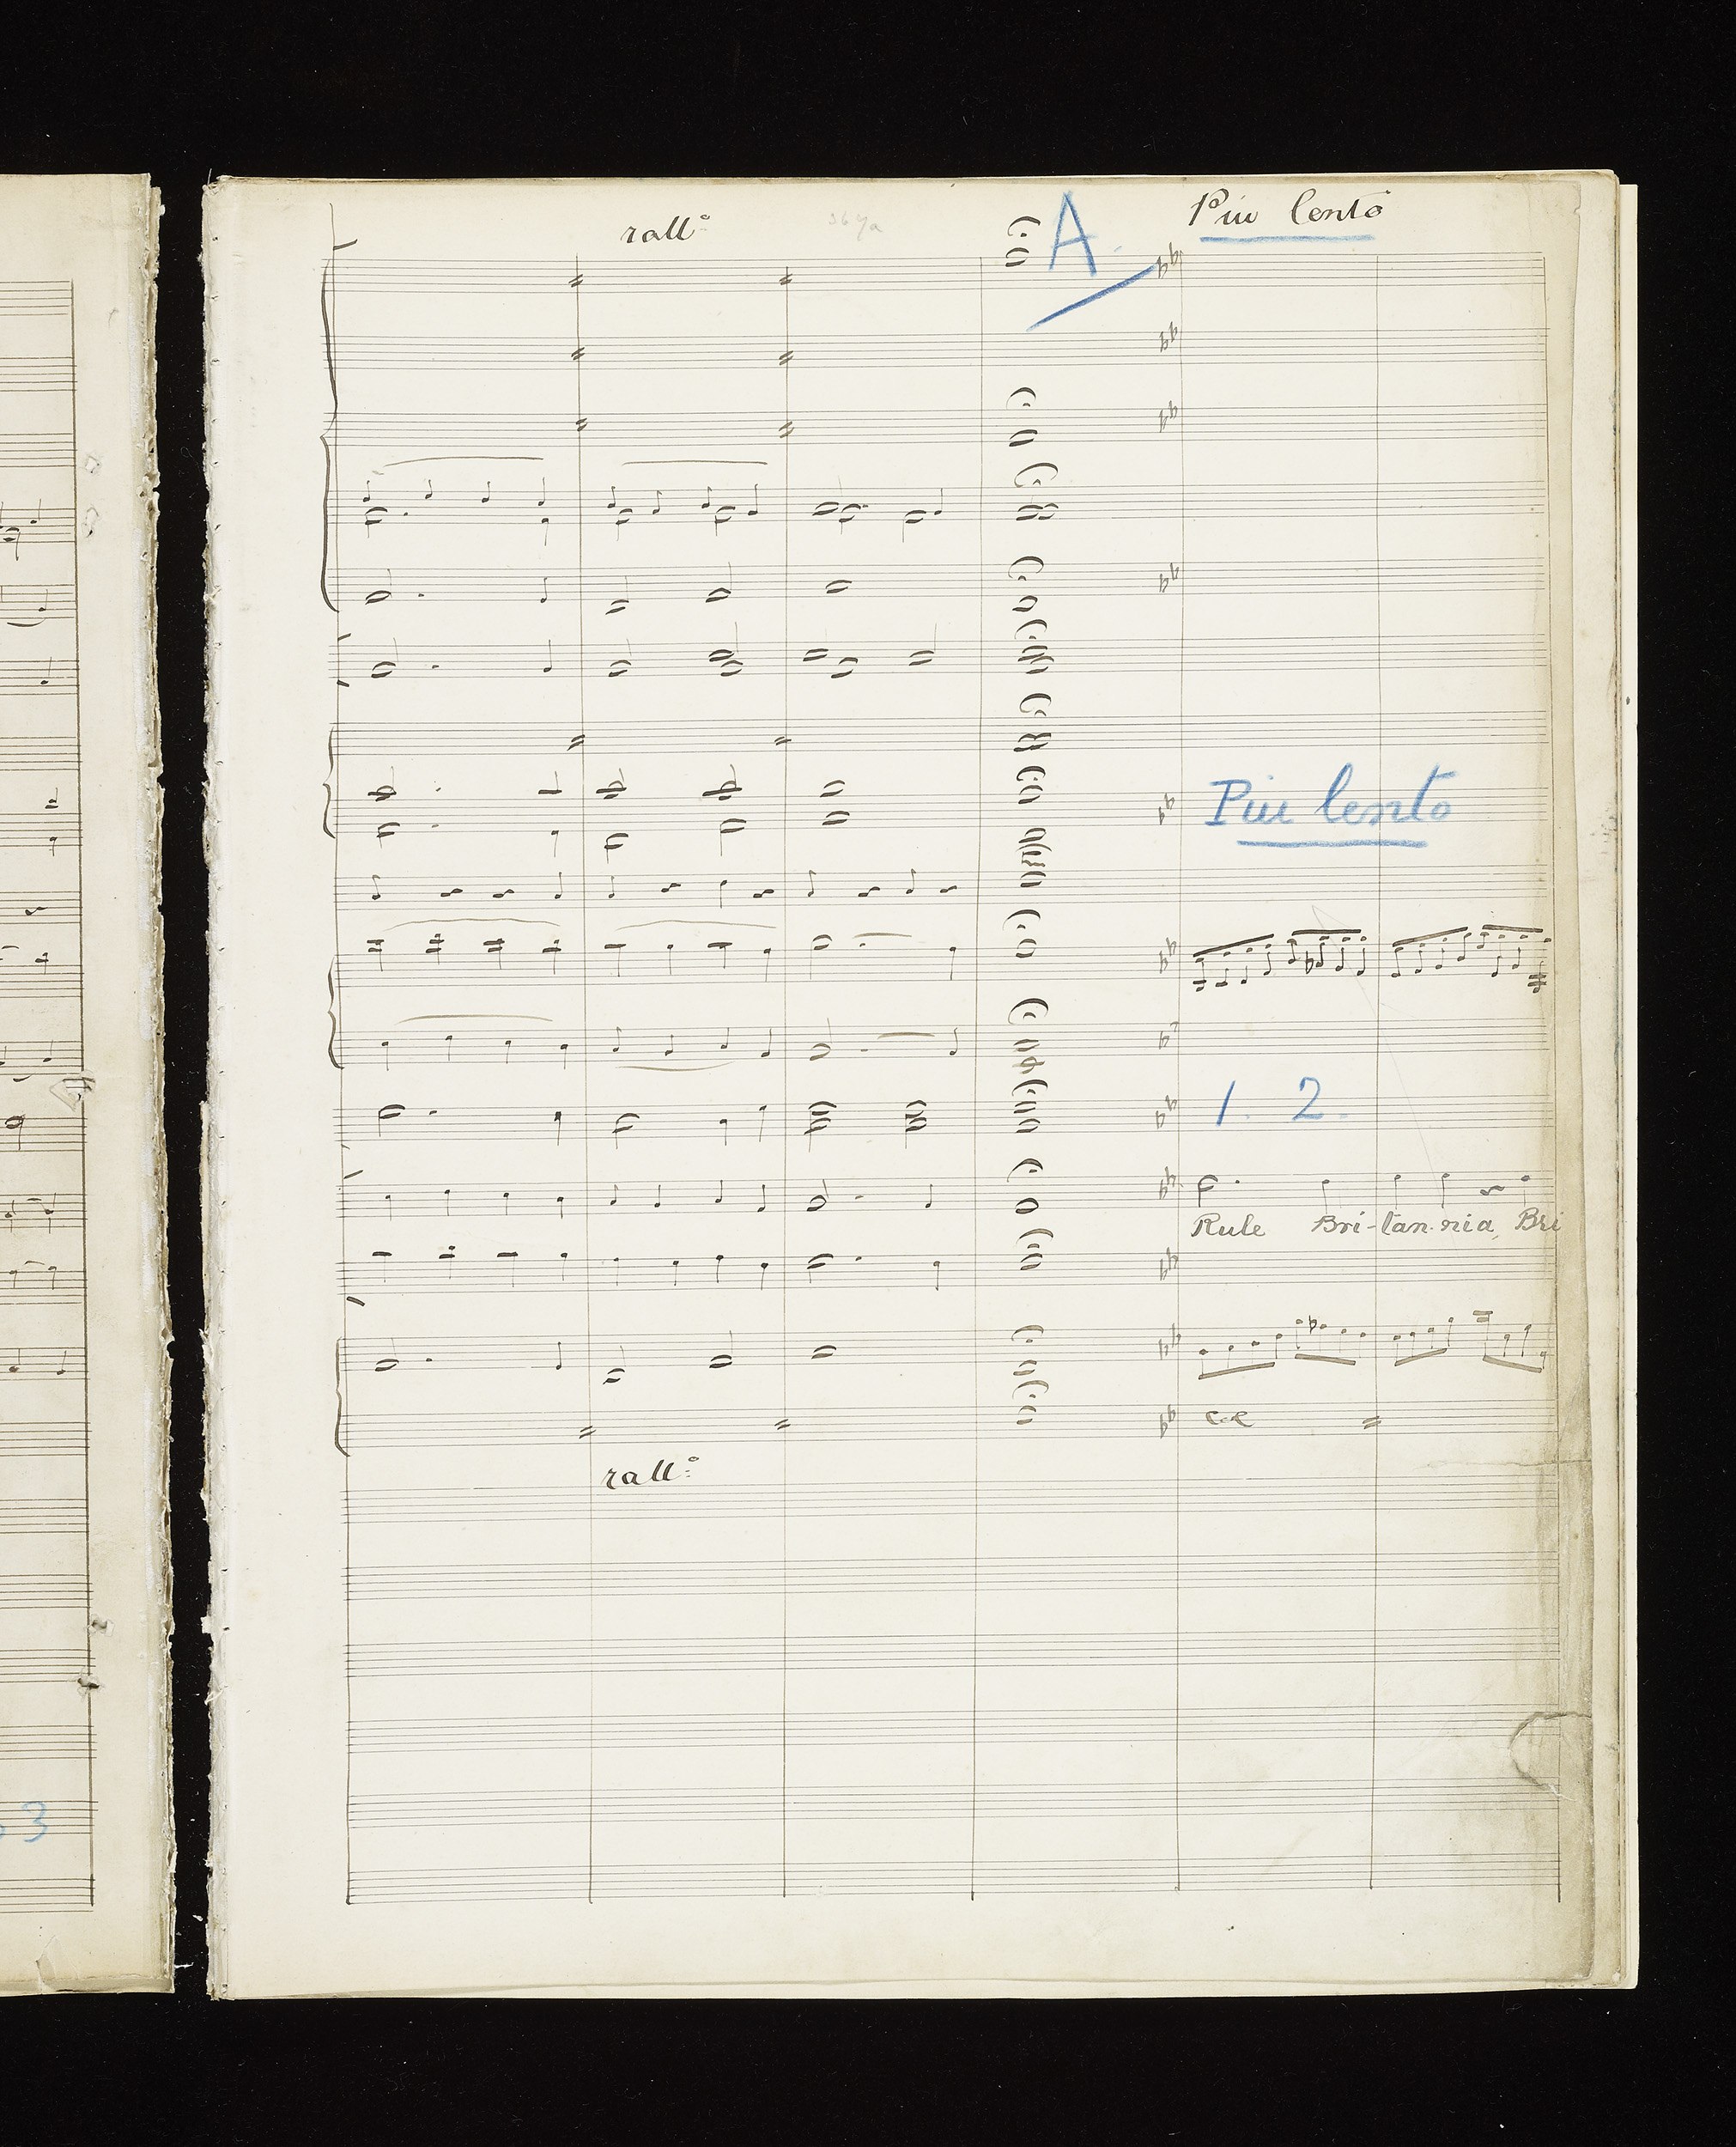 Piu lento
rall.º
A.
Piu lento
1. 2.
Rule Bri-tan.nia, Bri
c.c
rall.º
3